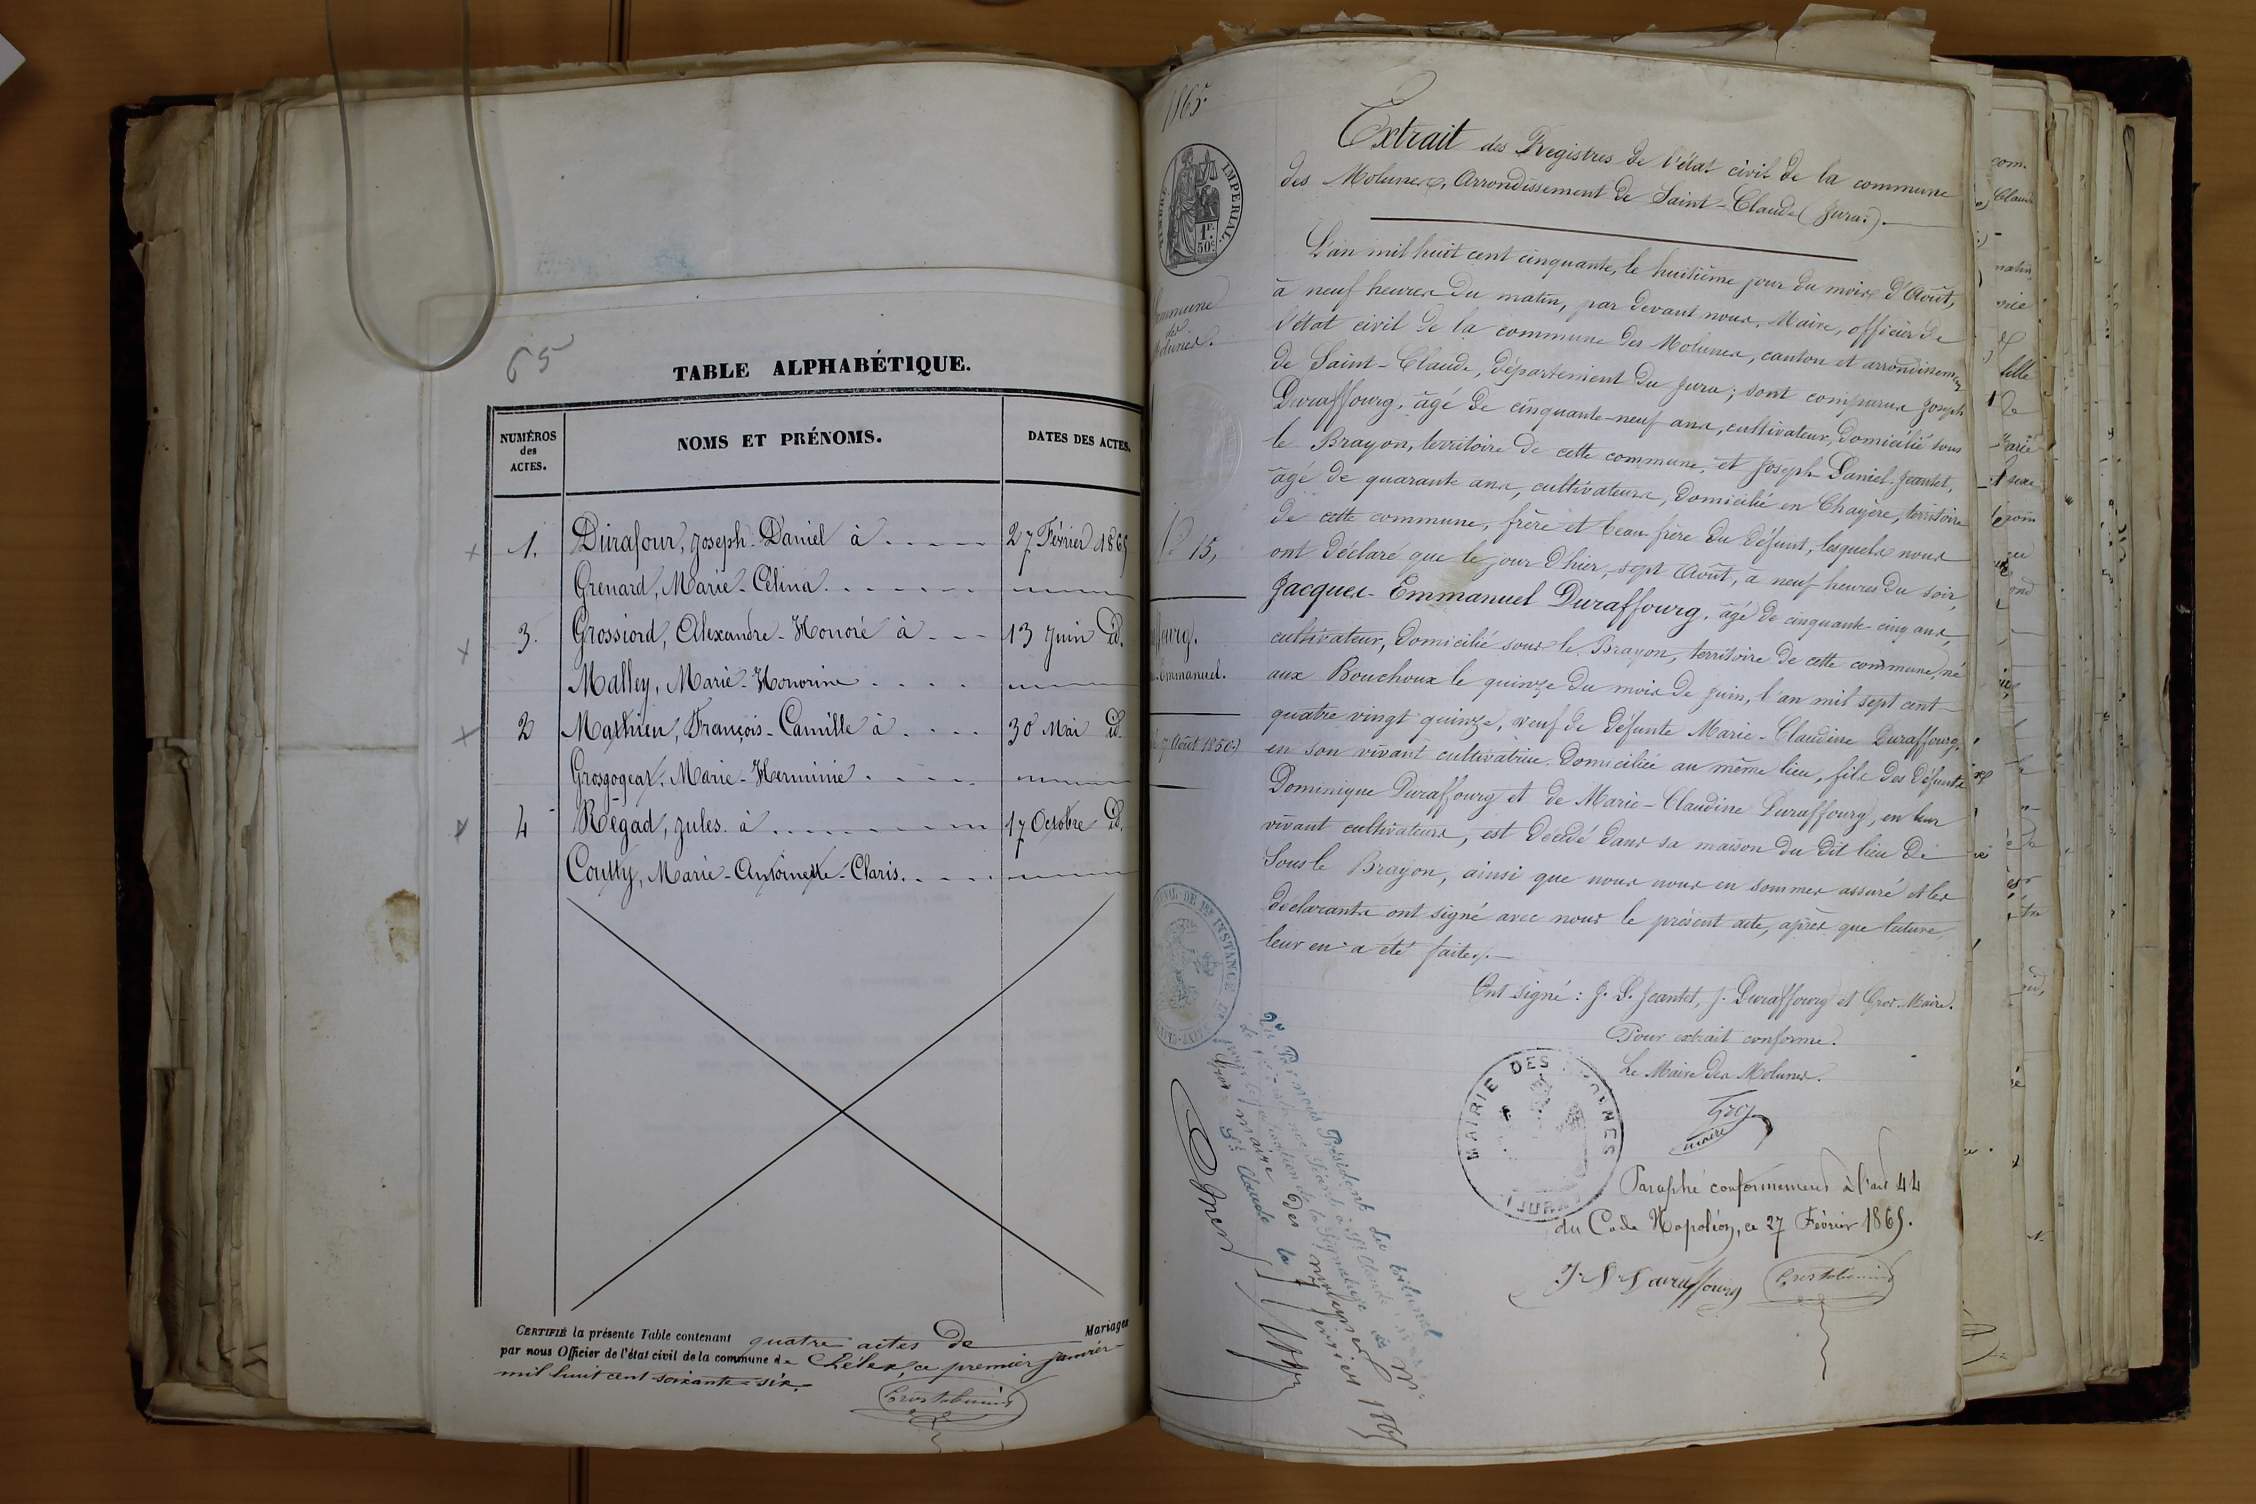 65
TABLE ALPHABÉTIQUE.
NUMÉROS
des
ACTES.
NOMS ET PRÉNOMS.
DATES DES ACTES.
1. Durafour, Joseph-Daniel à 27 Février 1865
Grenard, Marie-Célina
3. Grossiord, Alexandre-Honoré à 13 Juin id.
Malley, Marie-Honorine
2 Mathieu, François-Camille à 30 Mai id.
Grosgogeat, Marie-Herminie
4 Régad, Jules à 17 Octobre id.
Coutty, Marie-Antoinette-Claris.
CERTIFIÉ la présente Table contenant quatre actes de Mariages
par nous Officier de l'état civil de la commune de Lélex, ce premier janvier
mil huit cent soixante-six.
1865
TIMBRE IMPÉRIAL.
1F.
50c
Commune
des
Molunes.
Extrait des Registres de l'état civil de la commune
des Molunes, Arrondissement de Saint-Claude (Jura).
L'an mil huit cent cinquante, le huitième jour du mois d'Août,
à neuf heures du matin, par devant nous, Maire, officier de
l'état civil de la commune des Molunes, canton et arrondissement
de Saint-Claude, département du Jura; sont comparus Joseph
Duraffourg, âgé de cinquante-neuf ans, cultivateur, domicilié sous
le Brayon, territoire de cette commune, et Joseph-Daniel Jeantet,
âgé de quarante ans, cultivateur, domicilié en Chayère, territoire
de cette commune, frère et beau-frère du défunt, lesquels nous
ont déclaré que le jour d'hier, sept Août, à neuf heures du soir,
Jacques-Emmanuel Duraffourg, âgé de cinquante-cinq ans,
cultivateur, domicilié sous le Brayon, territoire de cette commune, né
aux Bouchoux le quinze du mois de juin, l'an mil sept cent
quatre vingt quinze, veuf de défunte Marie-Claudine Duraffourg,
en son vivant cultivatrice domiciliée au même lieu, fils des défunts
Dominique Duraffourg et de Marie-Claudine Duraffourg, en leur
vivant cultivateurs, est décédé dans sa maison du dit lieu de
Sous le Brayon, ainsi que nous nous en sommes assuré et les
déclarants ont signé avec nous le présent acte, après que lecture
leur en a été faite.
N° 15,
ffourg.
Emmanuel.
7 Août 1850.
Ont signé: J. D. Jeantet, J. Duraffourg et Gros Maire.
Pour extrait conforme.
Le Maire des Molunes.
Gros
maire
MAIRIE DES MOLUNES
(JURA)
Paraphé conformément à l'art 44
du Code Napoléon, ce 27 Février 1865.
J. D. Duraffourg
TRIBUNAL DE 1ère INSTANCE
Par nous Président du tribunal